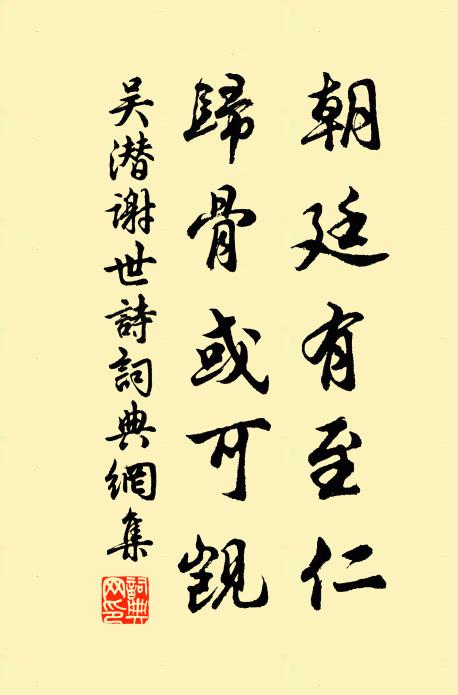 朝廷有至仁
歸骨或可覬
吴潛謝世詩詞典網集